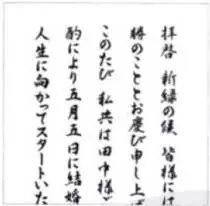 拝啓 新緑の候 皆様には
勝のこととお慶び申し上
このたび 私共は田中様
酌により五月五日に結婚
人生に向かってスタートいた